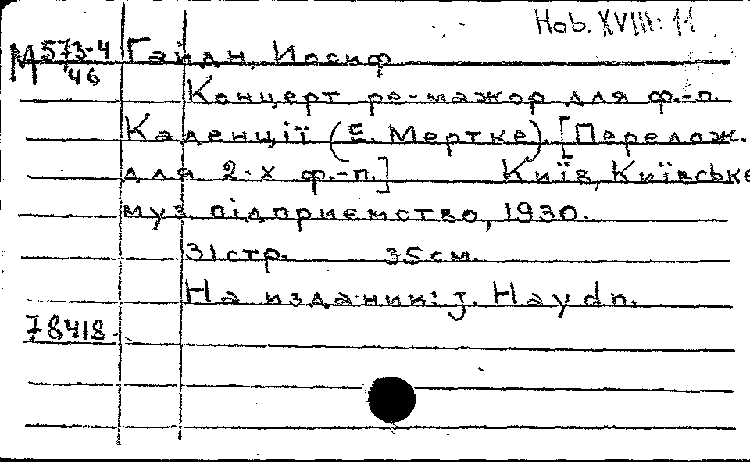 Hob. XVIII: 11
М 573-4 Гайдн, Иосиф
46
Концерт ре-мажор для ф.-п.
Каденції (Е. Мертке). [Перелож.
для 2-х ф.-п.] Київ, Київське
муз. підприємство, 1930.
31 стр. 35 см.
На изданик: J. Haydn.
78418